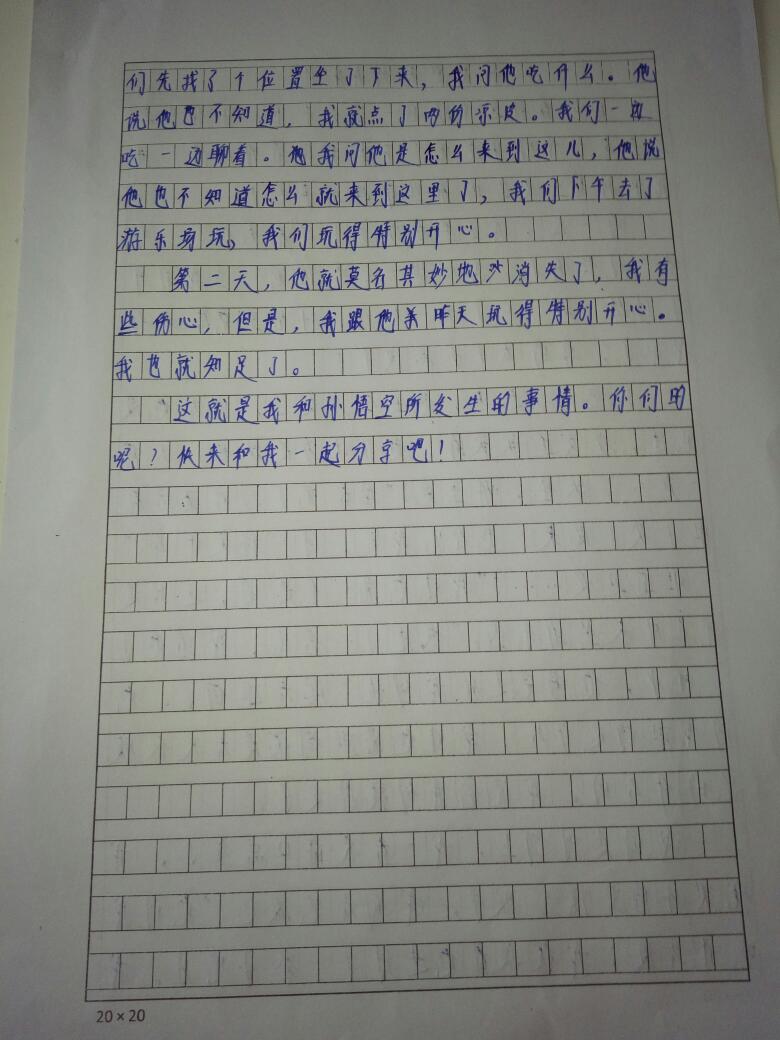 们先找了个位置坐了下来，我问他吃什么。他
说他也不知道，我就点了两份凉皮。我们一边
吃一边聊着。他我问他是怎么来到这儿，他说
他也不知道怎么就来到这里了，我们下午去了
游乐场玩，我们玩得特别开心。
第二天，他就莫名其妙地消失了，我有
些伤心，但是，我跟他昨天玩得特别开心。
我也就知足了。
这就是我和孙悟空所发生的事情。你们的
呢？快来和我一起分享吧！
20×20